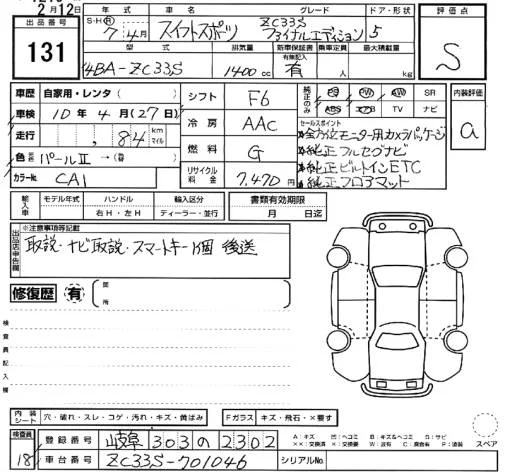 2月12日
出品番号
131
年式 車名 グレード ドア・形状 評価点
S・H・R 7年4月 スイフトスポーツ ZC33S ファイナルエディション 5 S
型式 排気量 新車保証書 乗車定員 最大積載量
有無記入
4BA-ZC33S 1400cc 有 人 kg
車歴 自家用・レンタ( ) シフト F6 純正のみ PS PW AW SR 内装評価
車検 10年4月(27日) 冷房 AAC ABS エアB TV ナビ a
走行 84 km マイル 燃料 G セールスポイント
色 パールⅡ→( ) リサイクル料金 7,470円
カラーNo. CA1
全方位モニター用カメラパッケージ
純正フルセグナビ
純正ビルトインETC
純正フロアマット
輸入車 モデル年式 ハンドル 輸入区分 書類有効期限
年 右H・左H ディーラー・並行 月 日迄
出品店申告欄 ※注意事項等記載
取説・ナビ取説・スマートキー1個 後送
修復歴 有 箇所
検査員記入欄
内装シート 穴・破れ・スレ・コゲ・汚れ・キズ・黄ばみ Fガラス キズ・飛石・×要す
検査員 18 登録番号 岐阜 303 の 2302
車台番号 ZC33S-701046 シリアルNo.
A:キズ 凹:ヘコミ B:キズ&ヘコミ S:サビ
××:交換済 ×:要交換 W:波有 C:腐食有 P:塗装
スペア